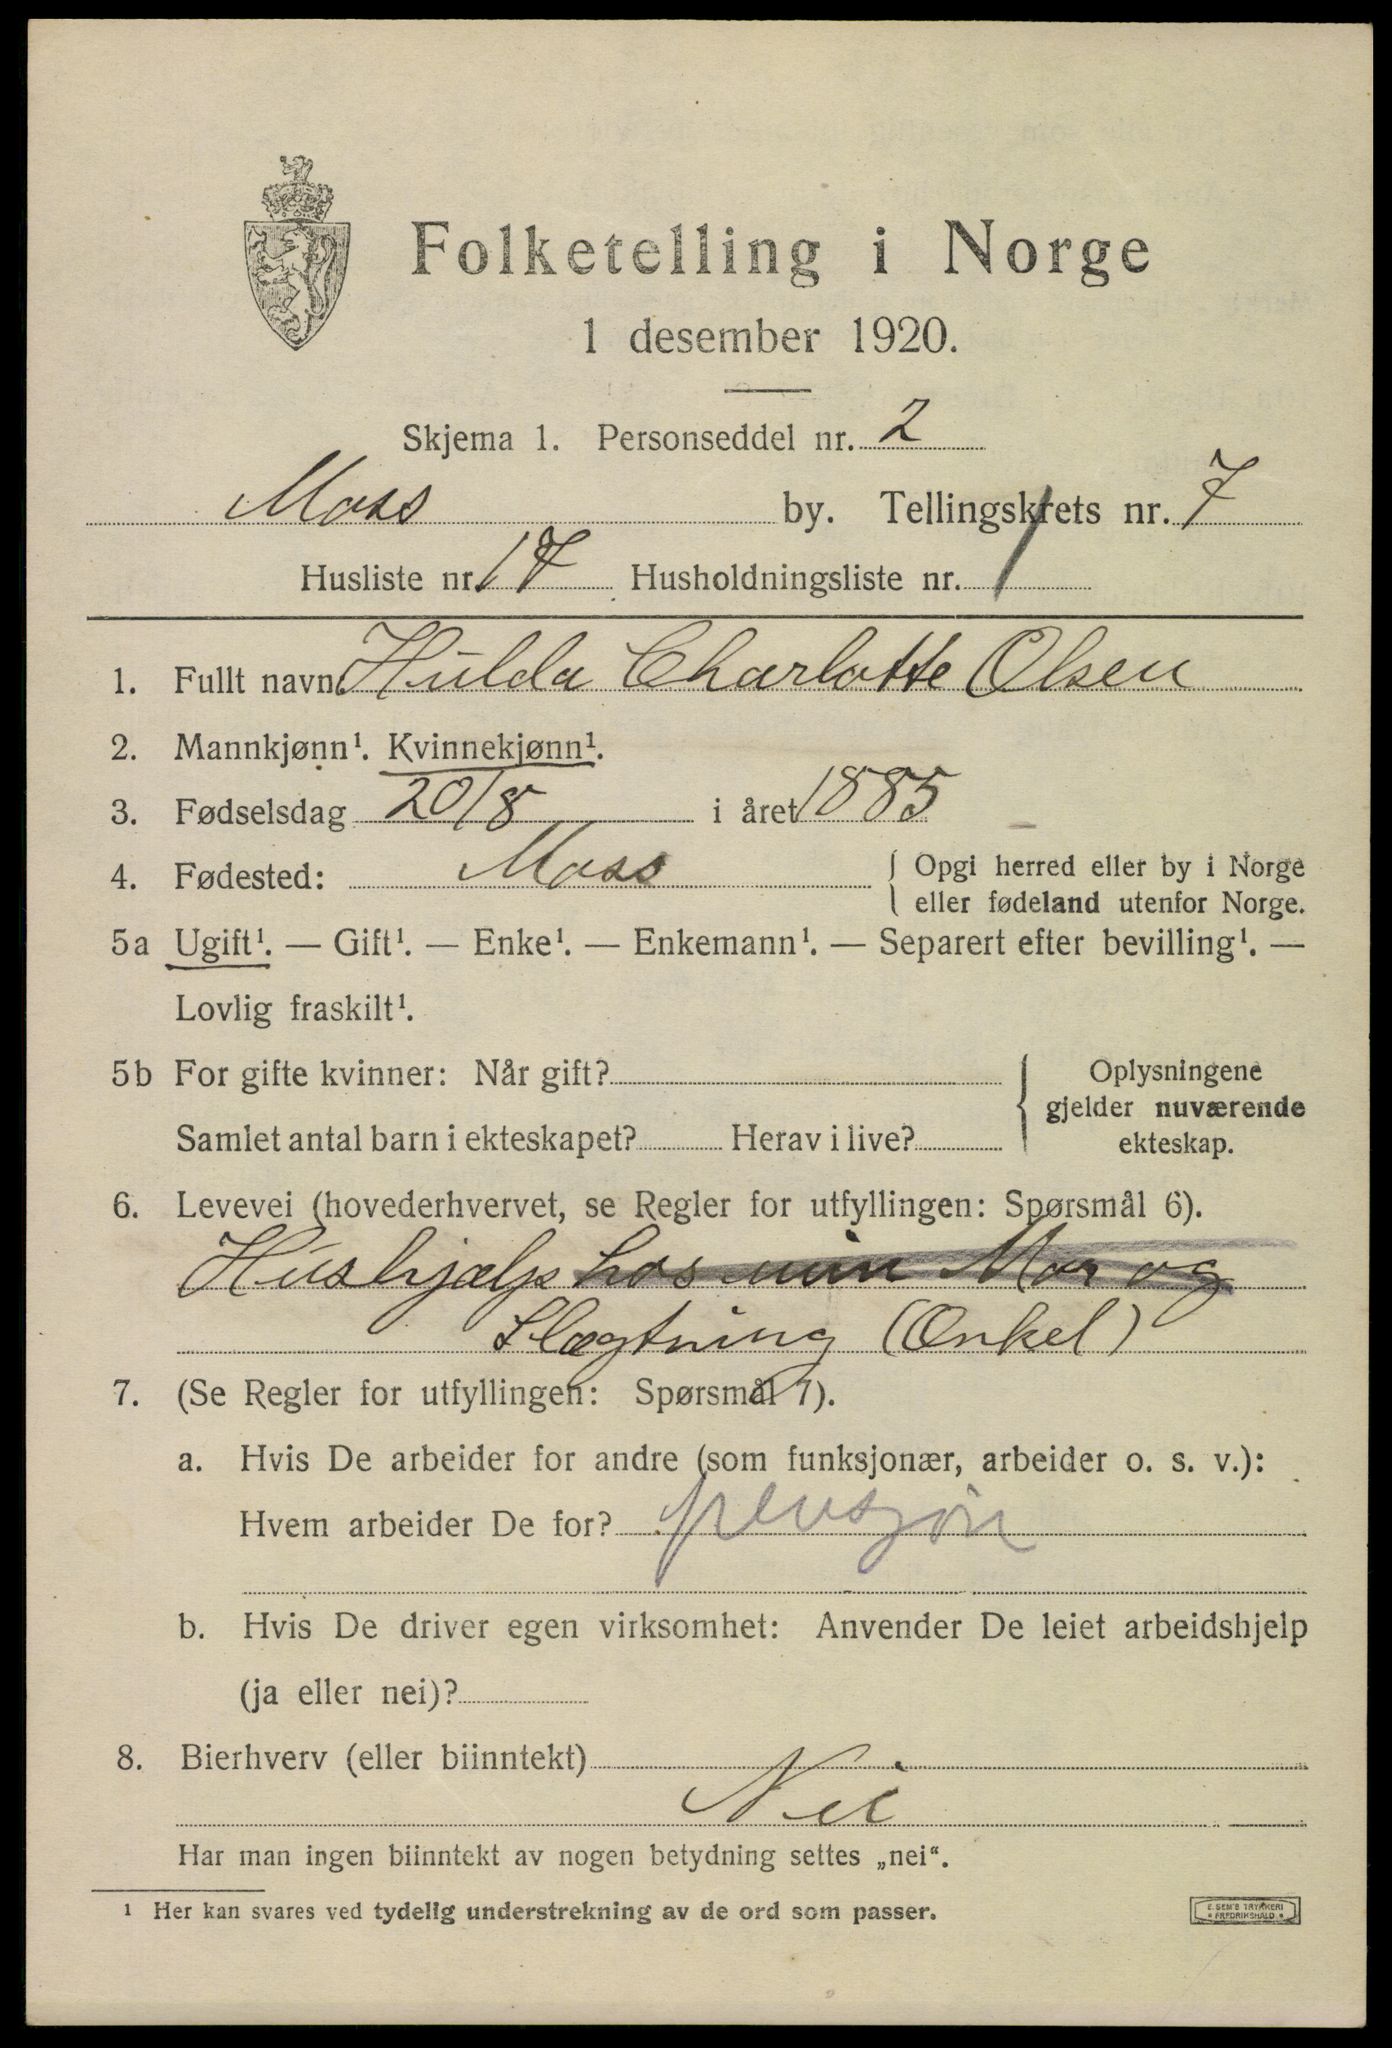 Folketelling i Norge
1 desember 1920.
Skjema 1. Personseddel nr. 2
Moss by. Tellingskrets nr. 7
Husliste nr. 17 Husholdningsliste nr. 1
1. Fullt navn Hulda Charlotte Olsen
2. Mannkjønn¹. Kvinnekjønn¹.
3. Fødselsdag 20/8 i året 1885
4. Fødested: Moss { Opgi herred eller by i Norge
eller fødeland utenfor Norge.
5a Ugift¹. — Gift¹. — Enke¹. — Enkemann¹. — Separert efter bevilling¹. —
Lovlig fraskilt¹.
5b For gifte kvinner: Når gift? { Oplysningene
gjelder nuværende
Samlet antal barn i ekteskapet? Herav i live? ekteskap.
6. Levevei (hovederhvervet, se Regler for utfyllingen: Spørsmål 6).
Hushjælp hos min Mor og
Slægtning (Onkel)
7. (Se Regler for utfyllingen: Spørsmål 7).
a. Hvis De arbeider for andre (som funksjonær, arbeider o. s. v.):
Hvem arbeider De for? pensjon
b. Hvis De driver egen virksomhet: Anvender De leiet arbeidshjelp
(ja eller nei)?
8. Bierhverv (eller biinntekt)
Nei
Har man ingen biinntekt av nogen betydning settes „nei“.
¹ Her kan svares ved tydelig understrekning av de ord som passer.
E. SEM'S TRYKKERI
FREDRIKSHALD